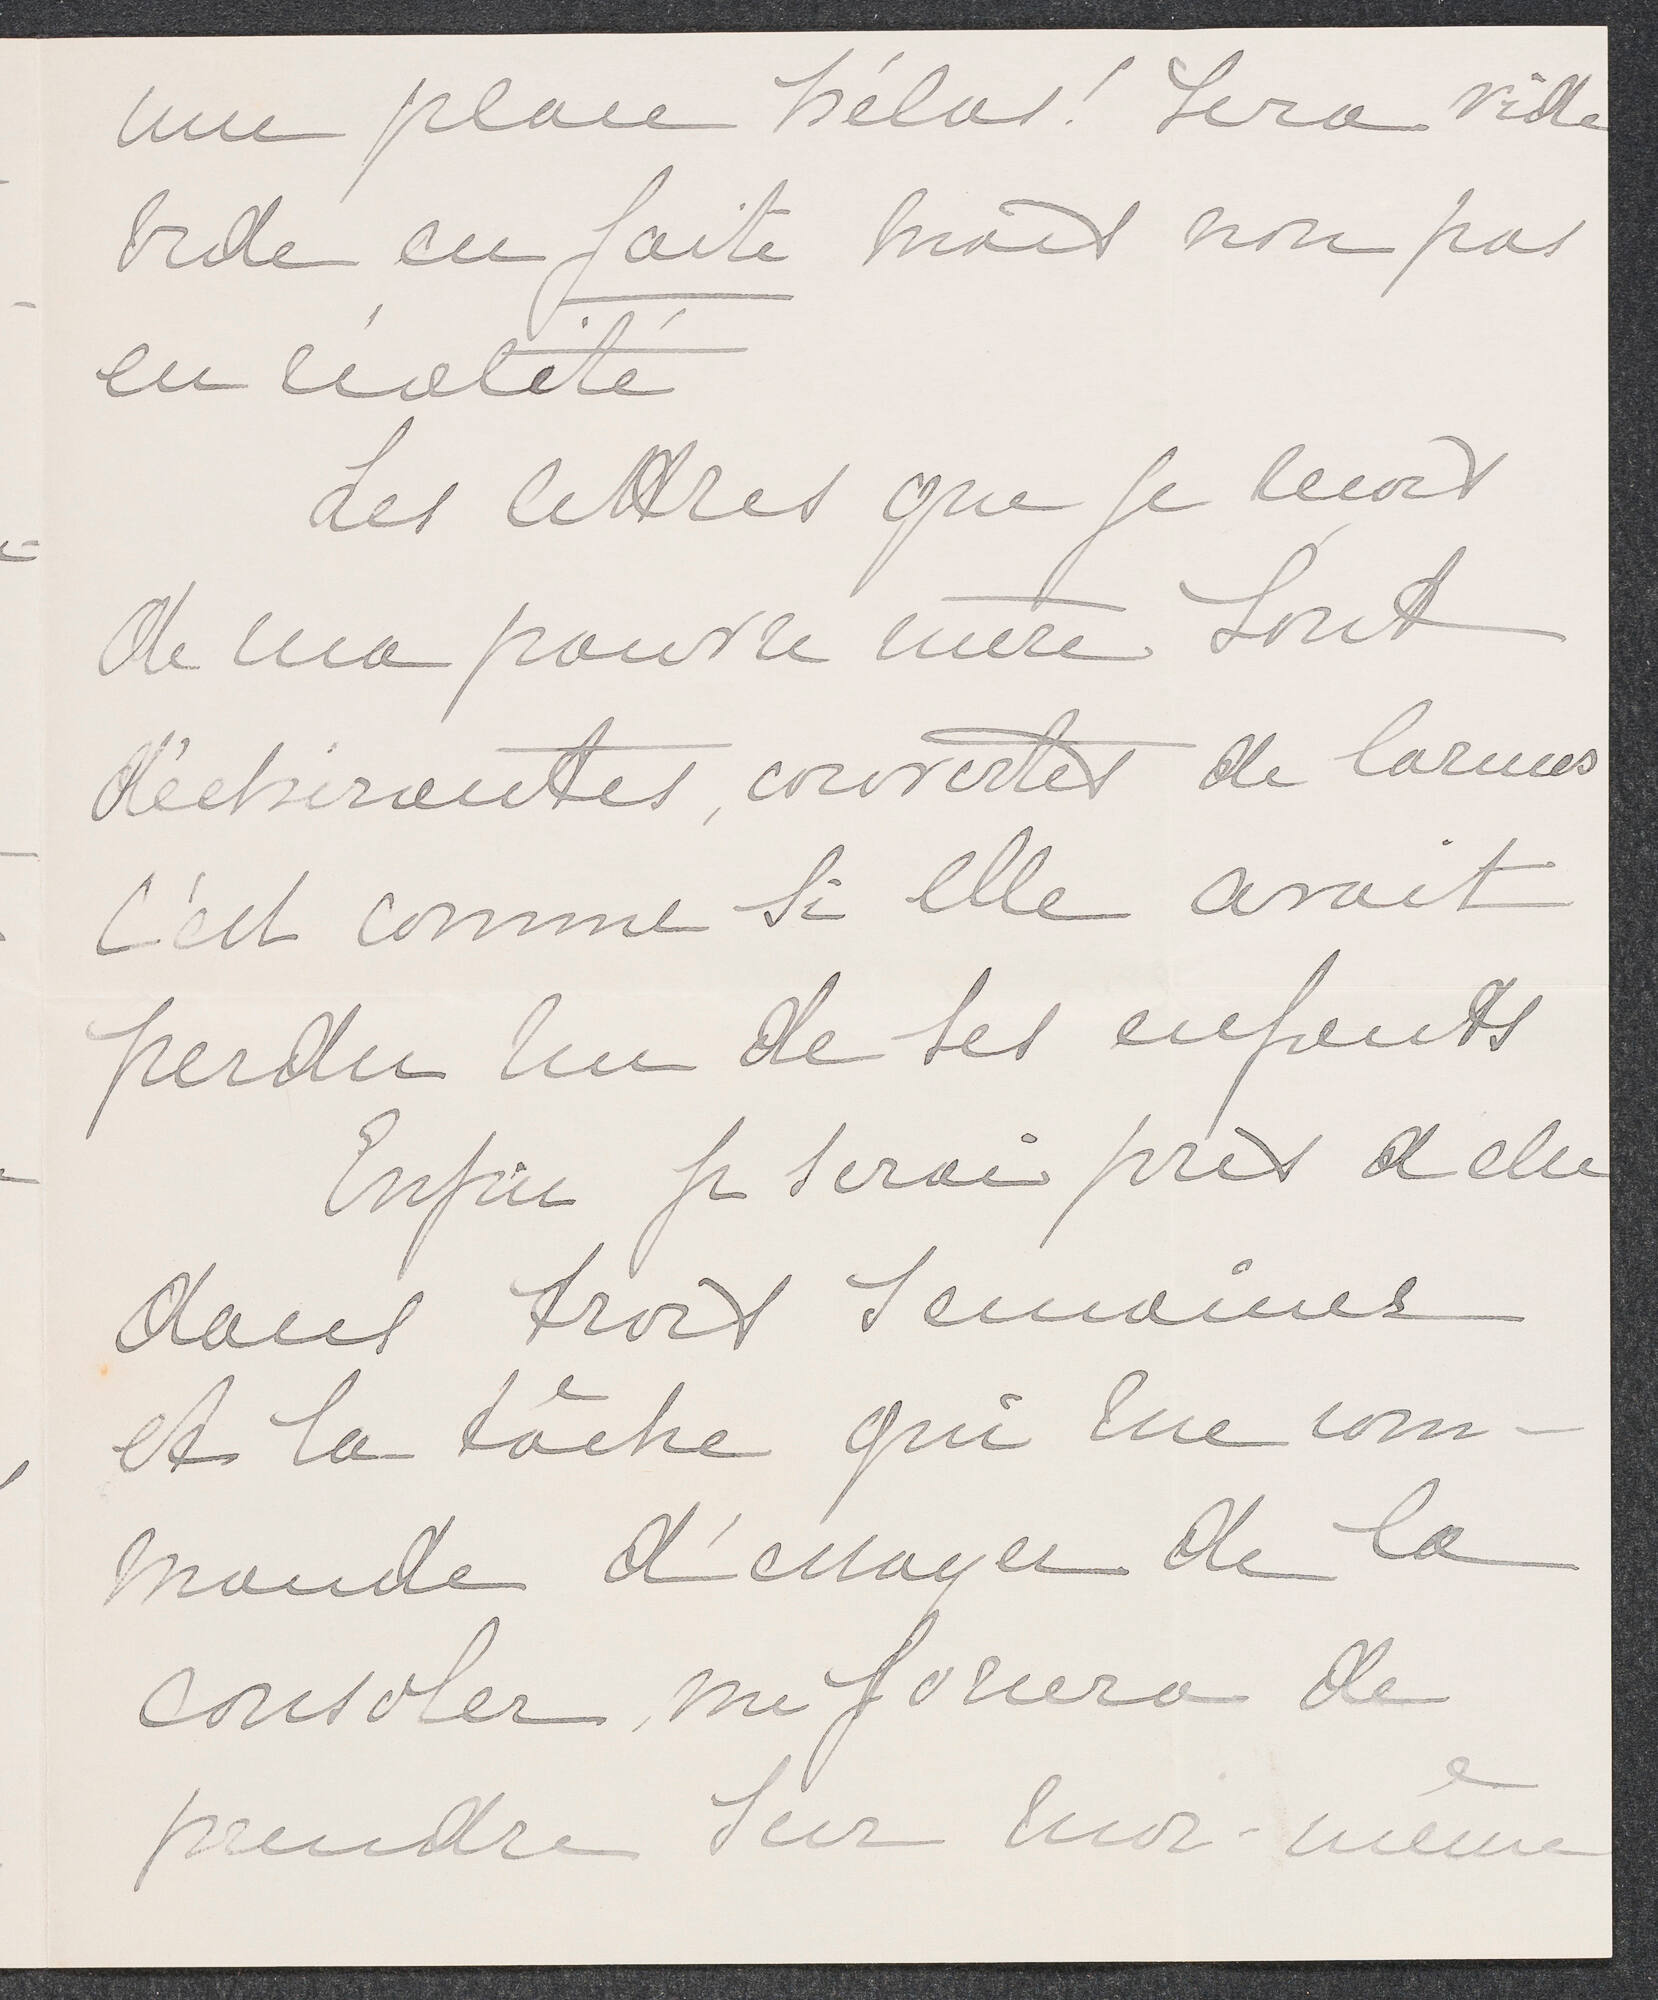 une place hélas! sera vide
vide en faite mais non pas
en réalité
Les lettres que je reçois
de ma pauvre mère sont
déchirantes, couvertes de larmes
c'est comme si elle avait
perdu un de ses enfants
Enfin je serai près d elle
dans trois semaines
et la tâche qui me com-
mande d'essayer de la
consoler, me forcera de
prendre sur moi-même